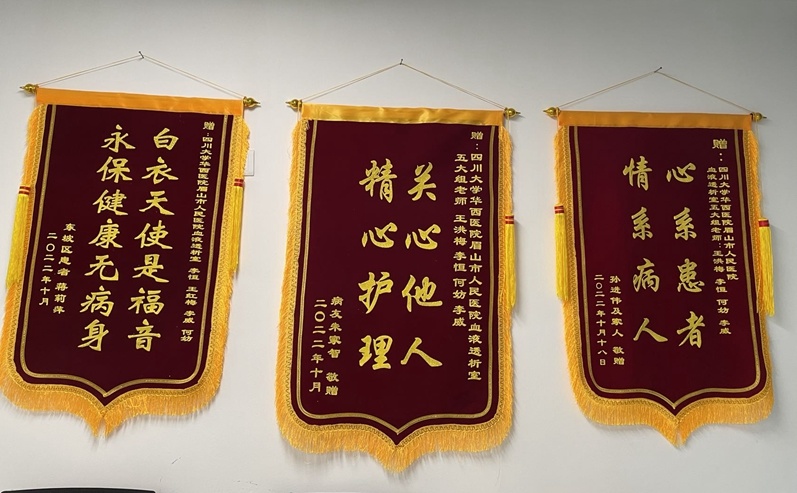 赠：四川大学华西医院眉山市人民医院血液透析室 李恒 王红梅 李威 何幼
白衣天使是福音
永保健康无病身
东坡区患者 蒋莉萍
二〇二二年十月
赠：四川大学华西医院眉山市人民医院血液透析室
五大组老师 王洪梅 李恒 何幼 李威
关心他人
精心护理
病友朱家智 敬赠
二〇二二年十月
赠：四川大学华西医院眉山市人民医院
血液透析室五大组老师：王洪梅 李恒 何幼 李威
心系患者
情系病人
孙进伟及家人 敬赠
二〇二二年十月十八日